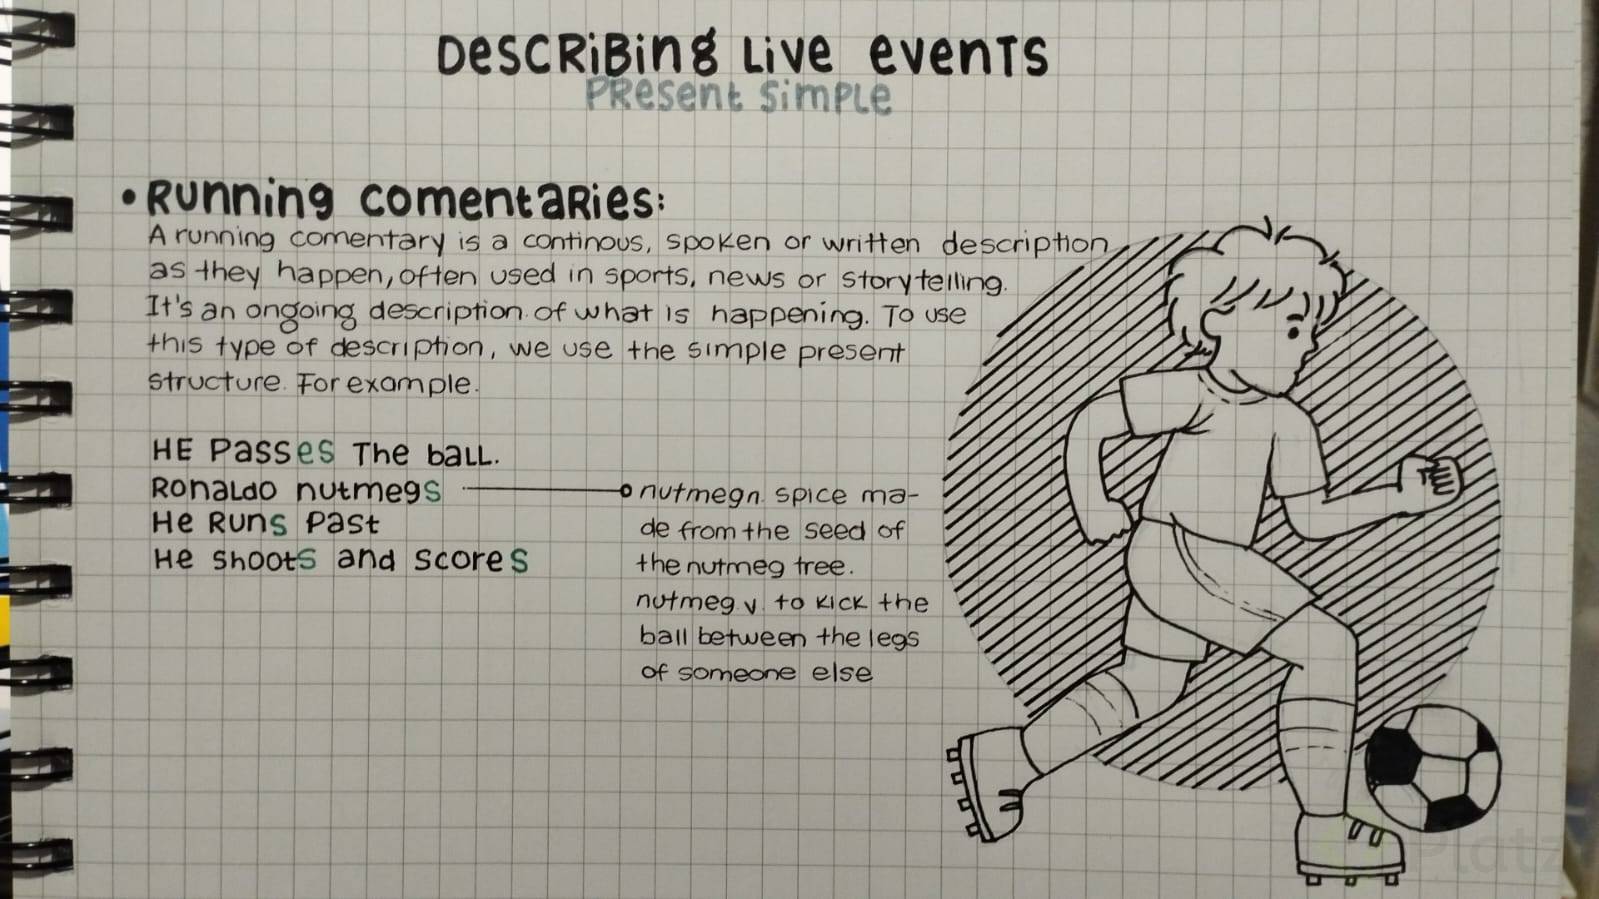 DESCRIBING LIVE EVENTS
PRESENT SIMPLE
• RUNNING COMENTARIES:
A running comentary is a continous, spoken or written description
as they happen, often used in sports, news or storytelling.
It's an ongoing description of what is happening. To use
this type of description, we use the simple present
structure. For example.
HE PASSES THE BALL.
RONALDO NUTMEGS
HE RUNS PAST
HE SHOOTS AND SCORES
nutmeg n. spice ma-
de from the seed of
the nutmeg tree.
nutmeg v. to kick the
ball between the legs
of someone else
Platzi